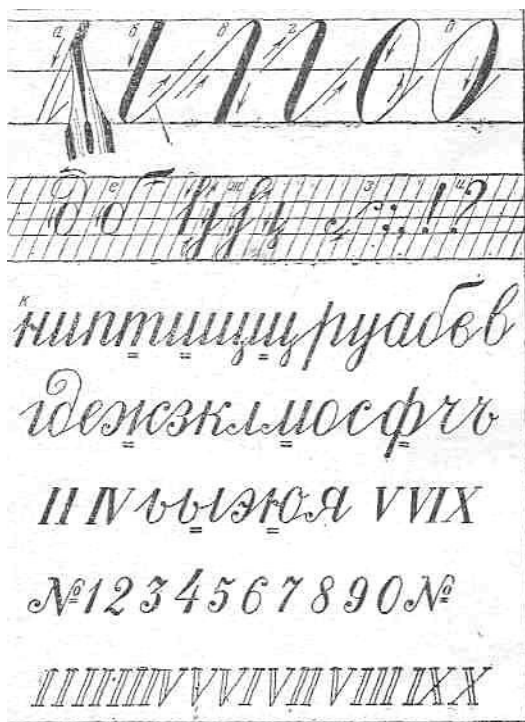 а б в г д
д е б у ж з : ; ! ? и
к
ниптшцщруабев
гдежзклмосфчъ
II IV ьыэюя V VI X
№ 1 2 3 4 5 6 7 8 9 0 №
I II III IV V VI VII VIII IX X